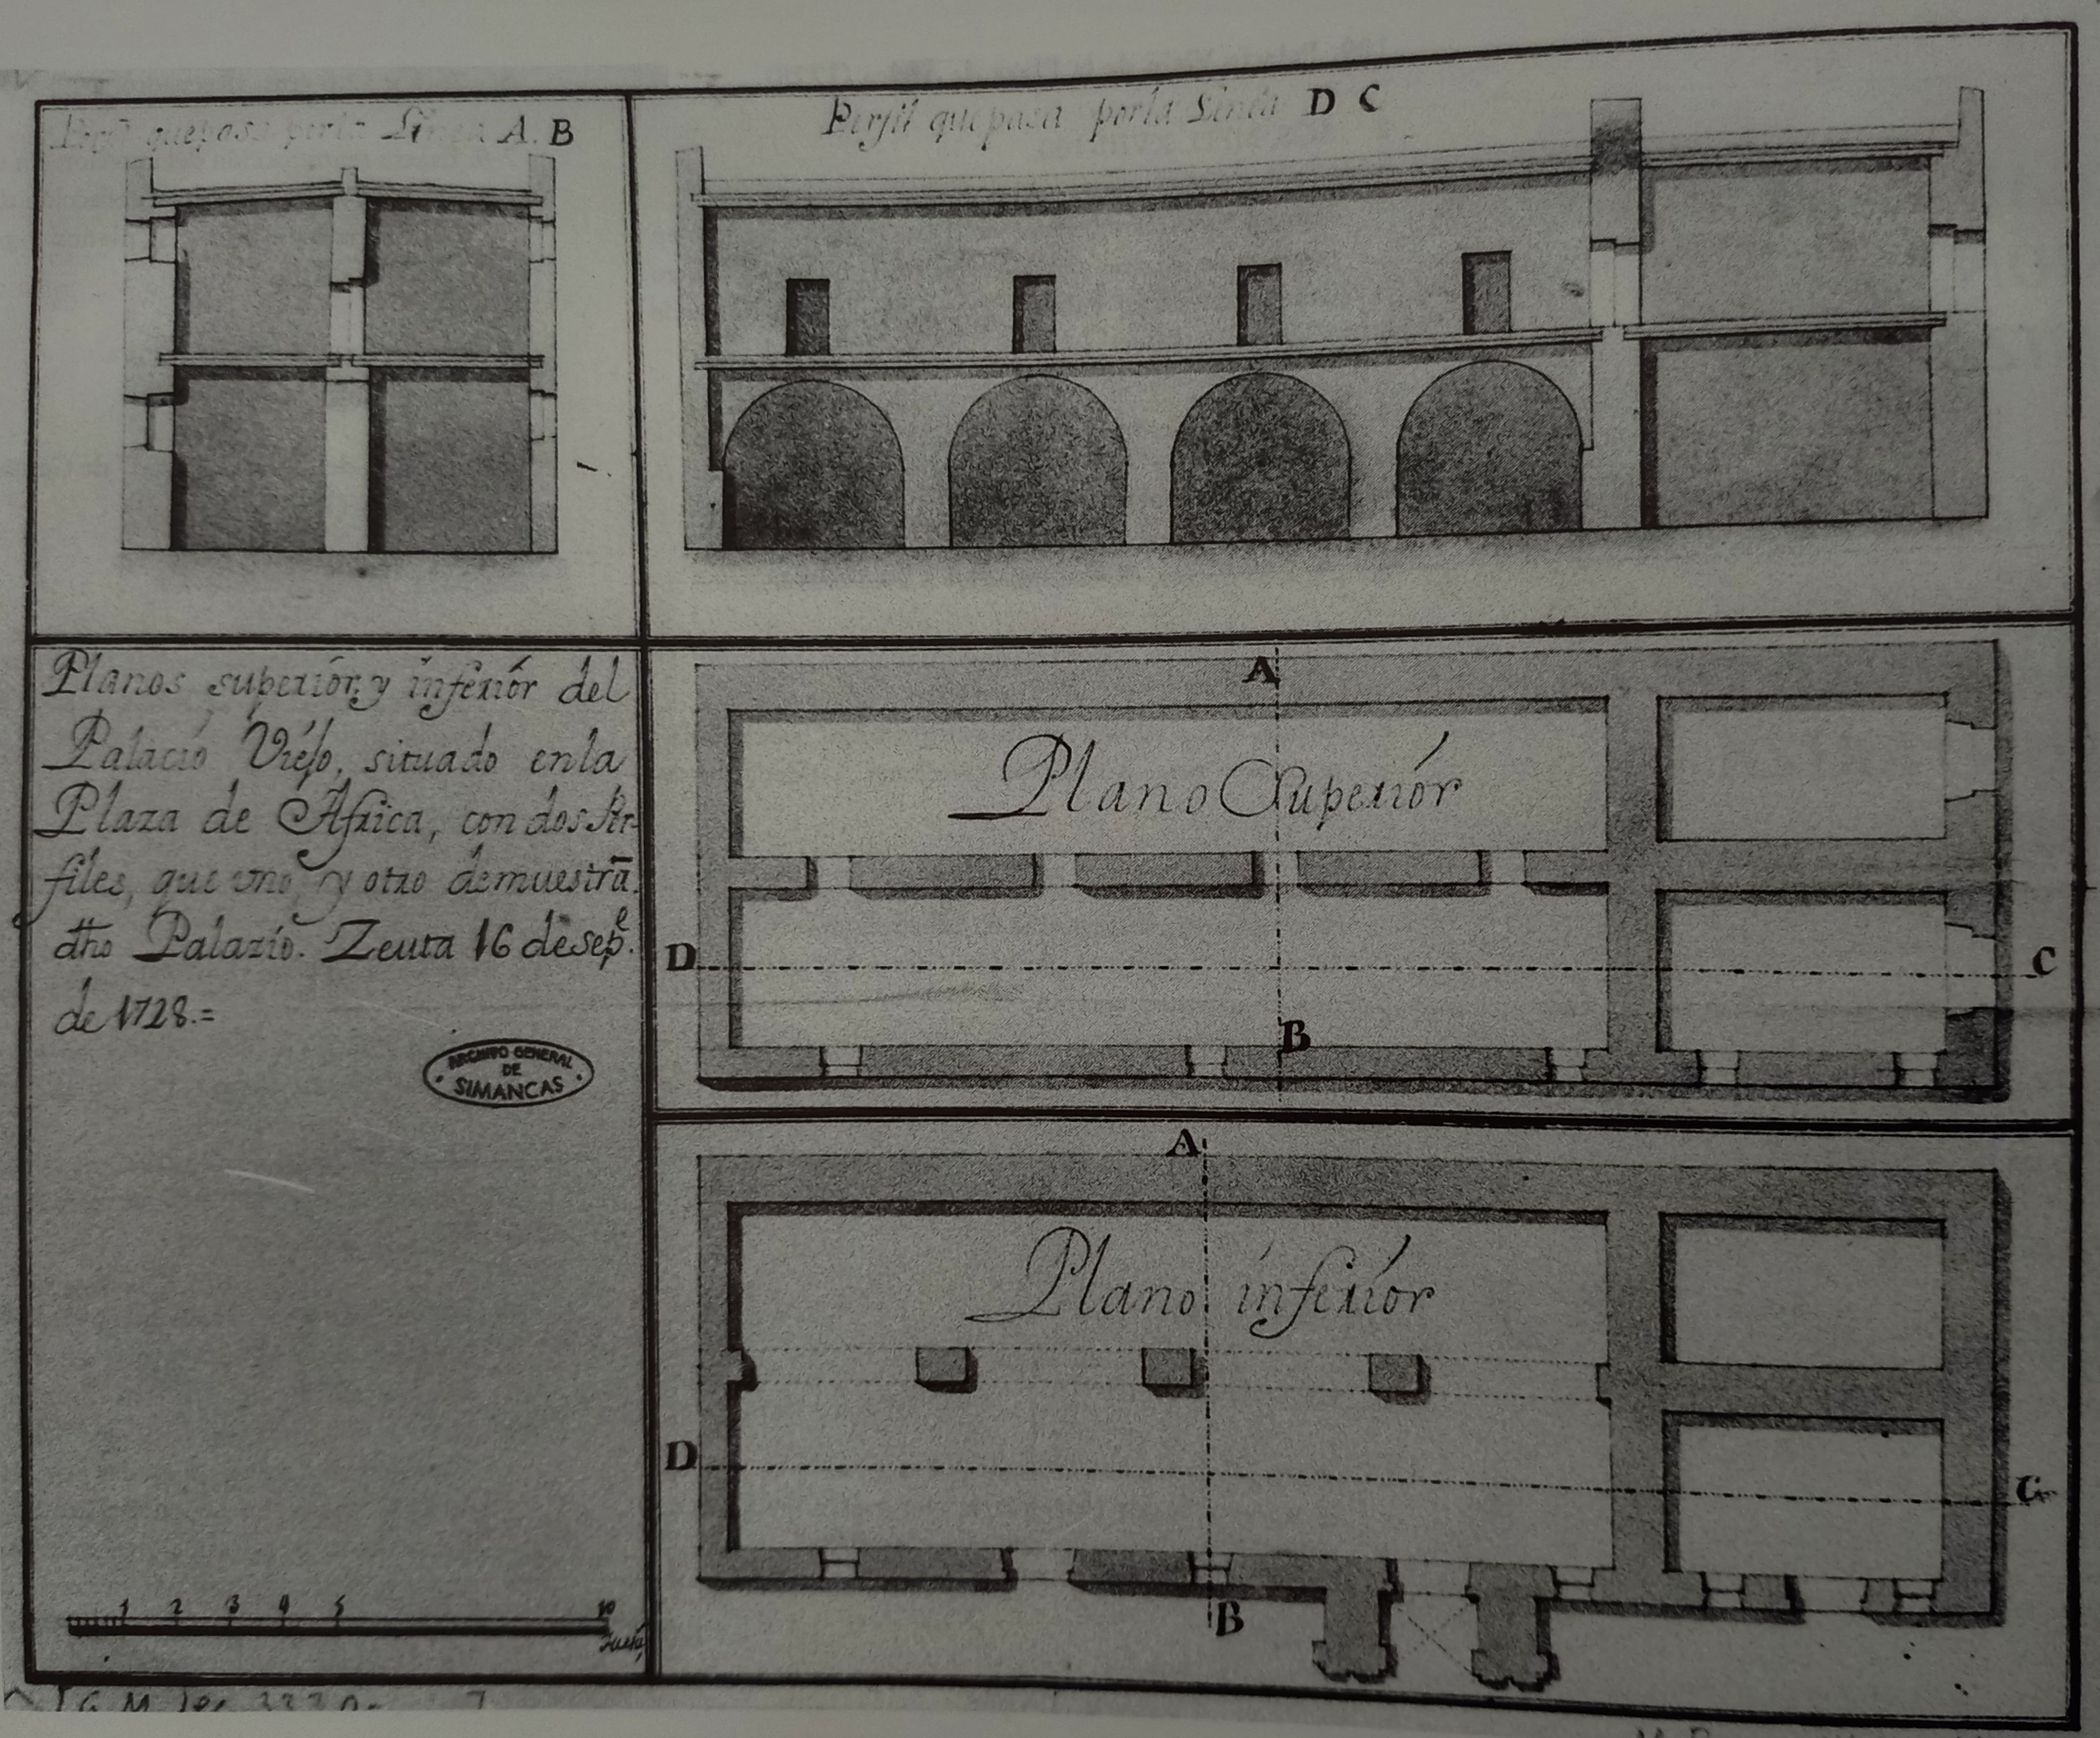 Perfil que pasa por la Linea A. B
Perfil que pasa por la Linea D C
Planos superiór, y inferiór del
Palacio Viéjo, situado en la
Plaza de Africa, con dos Per-
files, que uno, y otro demuestrã
dho Palazio. Zeuta 16 de sepe.
de 1728.=
ARCHIVO GENERAL
DE
SIMANCAS
1 2 3 4 5 10
A
Plano Superiór
D C
B
A
Plano inferiór
D C
B